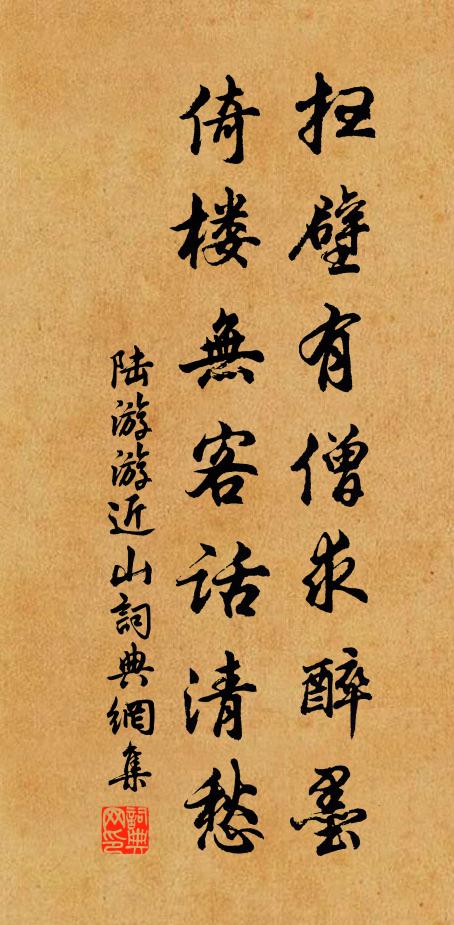 扫壁有僧求醉墨
倚楼無客話清愁
陆游游近山詞典網集
詞典网印